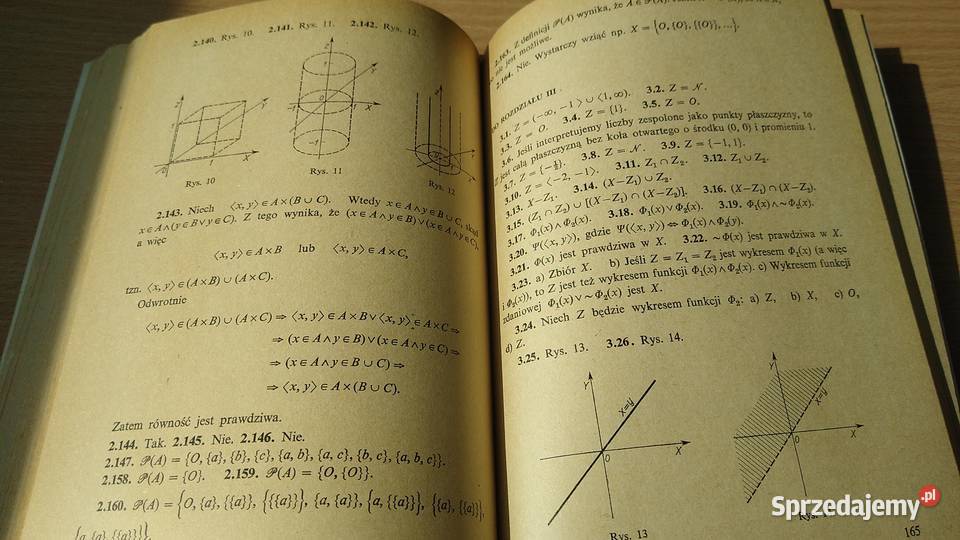 2.140. Rys. 10. 2.141. Rys. 11. 2.142. Rys. 12.
Z
Y
X
1
0
Rys. 10
Z
1
Y
X
-1
1
-1
Rys. 11
Z
Y
-1
X
Rys. 12
2.143. Niech ⟨x, y⟩∈A×(B∪C). Wtedy x∈A∧y∈B∪C, skąd
x∈A∧(y∈B∨y∈C). Z tego wynika, że (x∈A∧y∈B)∨(x∈A∧y∈C),
a więc
⟨x, y⟩∈A×B lub ⟨x, y⟩∈A×C,
tzn. ⟨x, y⟩∈(A×B)∪(A×C).
Odwrotnie
⟨x, y⟩∈(A×B)∪(A×C) ⇒ ⟨x, y⟩∈A×B∨⟨x, y⟩∈A×C ⇒
⇒ (x∈A∧y∈B)∨(x∈A∧y∈C) ⇒
⇒ (x∈A∧y∈B∪C) ⇒
⇒ ⟨x, y⟩∈A×(B∪C).
Zatem równość jest prawdziwa.
2.144. Tak. 2.145. Nie. 2.146. Nie.
2.147. 𝒫(A) = {O, {a}, {b}, {c}, {a, b}, {a, c}, {b, c}, {a, b, c}}.
2.158. 𝒫(A) = {O}. 2.159. 𝒫(A) = {O, {O}}.
2.160. 𝒫(A) = {O, {a}, {{a}}, {{{a}}}, {a, {a}}, {a, {{a}}}, {{a}, {{a}}},
{a, {a}, {{a}}}}.
2.163. Z definicji 𝒫(A) wynika, że A∈𝒫(A).
nie jest możliwe.
2.164. Nie. Wystarczy wziąć np. X = {O, {O}, {{O}}, ...}.
DO ROZDZIAŁU III
3.1. Z = (-∞, -1⟩∪⟨1, ∞). 3.2. Z = 𝒩.
3.3. Z = O. 3.4. Z = {1}. 3.5. Z = O.
3.6. Jeśli interpretujemy liczby zespolone jako punkty płaszczyzny, to
Z jest całą płaszczyzną bez koła otwartego o środku (0, 0) i promieniu 1.
3.7. Z = {-½}. 3.8. Z = 𝒩. 3.9. Z = {-1, 1}.
3.10. Z = ⟨-2, -1⟩. 3.11. Z₁∩Z₂. 3.12. Z₁∪Z₂.
3.13. X-Z₁. 3.14. (X-Z₁)∪Z₂.
3.15. (Z₁∩Z₂)∪[(X-Z₁)∩(X-Z₂)]. 3.16. (X-Z₁)∩(X-Z₂).
3.17. Φ₁(x)∧Φ₂(x). 3.18. Φ₁(x)∨Φ₂(x). 3.19. Φ₁(x)∧∼Φ₂(x).
3.20. Ψ(⟨x, y⟩), gdzie Ψ(⟨x, y⟩) ⇔ Φ₁(x)∧Φ₂(y).
3.21. Φ(x) jest prawdziwa w X. 3.22. ∼Φ(x) jest prawdziwa w X.
3.23. a) Zbiór X. b) Jeśli Z = Z₁ = Z₂ jest wykresem Φ₁(x) (a więc
i Φ₂(x)), to Z jest też wykresem funkcji Φ₁(x)∧Φ₂(x). c) Wykresem funkcji
zdaniowej Φ₁(x)∨∼Φ₂(x) jest X.
3.24. Niech Z będzie wykresem funkcji Φ₂: a) Z, b) X, c) O,
d) Z.
3.25. Rys. 13. 3.26. Rys. 14.
Y
X=y
0
X
Rys. 13
Y
X=y
0
X
Rys.
165
Sprzedajemy.pl